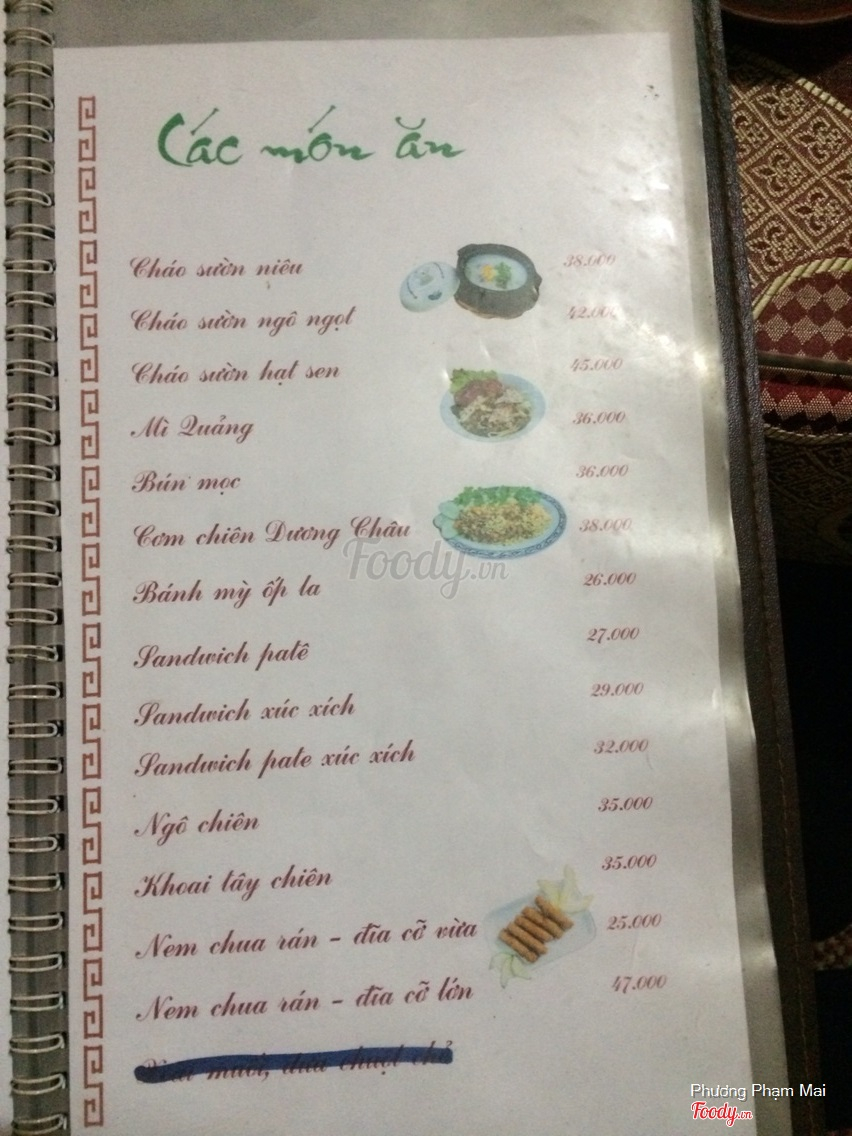 Các món ăn
Cháo sườn niêu 38.000
Cháo sườn ngô ngọt 42.000
Cháo sườn hạt sen 45.000
Mì Quảng 36.000
Bún mọc 36.000
Cơm chiên Dương Châu 38.000
Foody.vn
Bánh mỳ ốp la 26.000
Sandwich patê 27.000
Sandwich xúc xích 29.000
Sandwich pate xúc xích 32.000
Ngô chiên 35.000
Khoai tây chiên 35.000
Nem chua rán - đĩa cỡ vừa 25.000
Nem chua rán - đĩa cỡ lớn 47.000
muối, dưa chuột chẻ
Phương Phạm Mai
Foody.vn